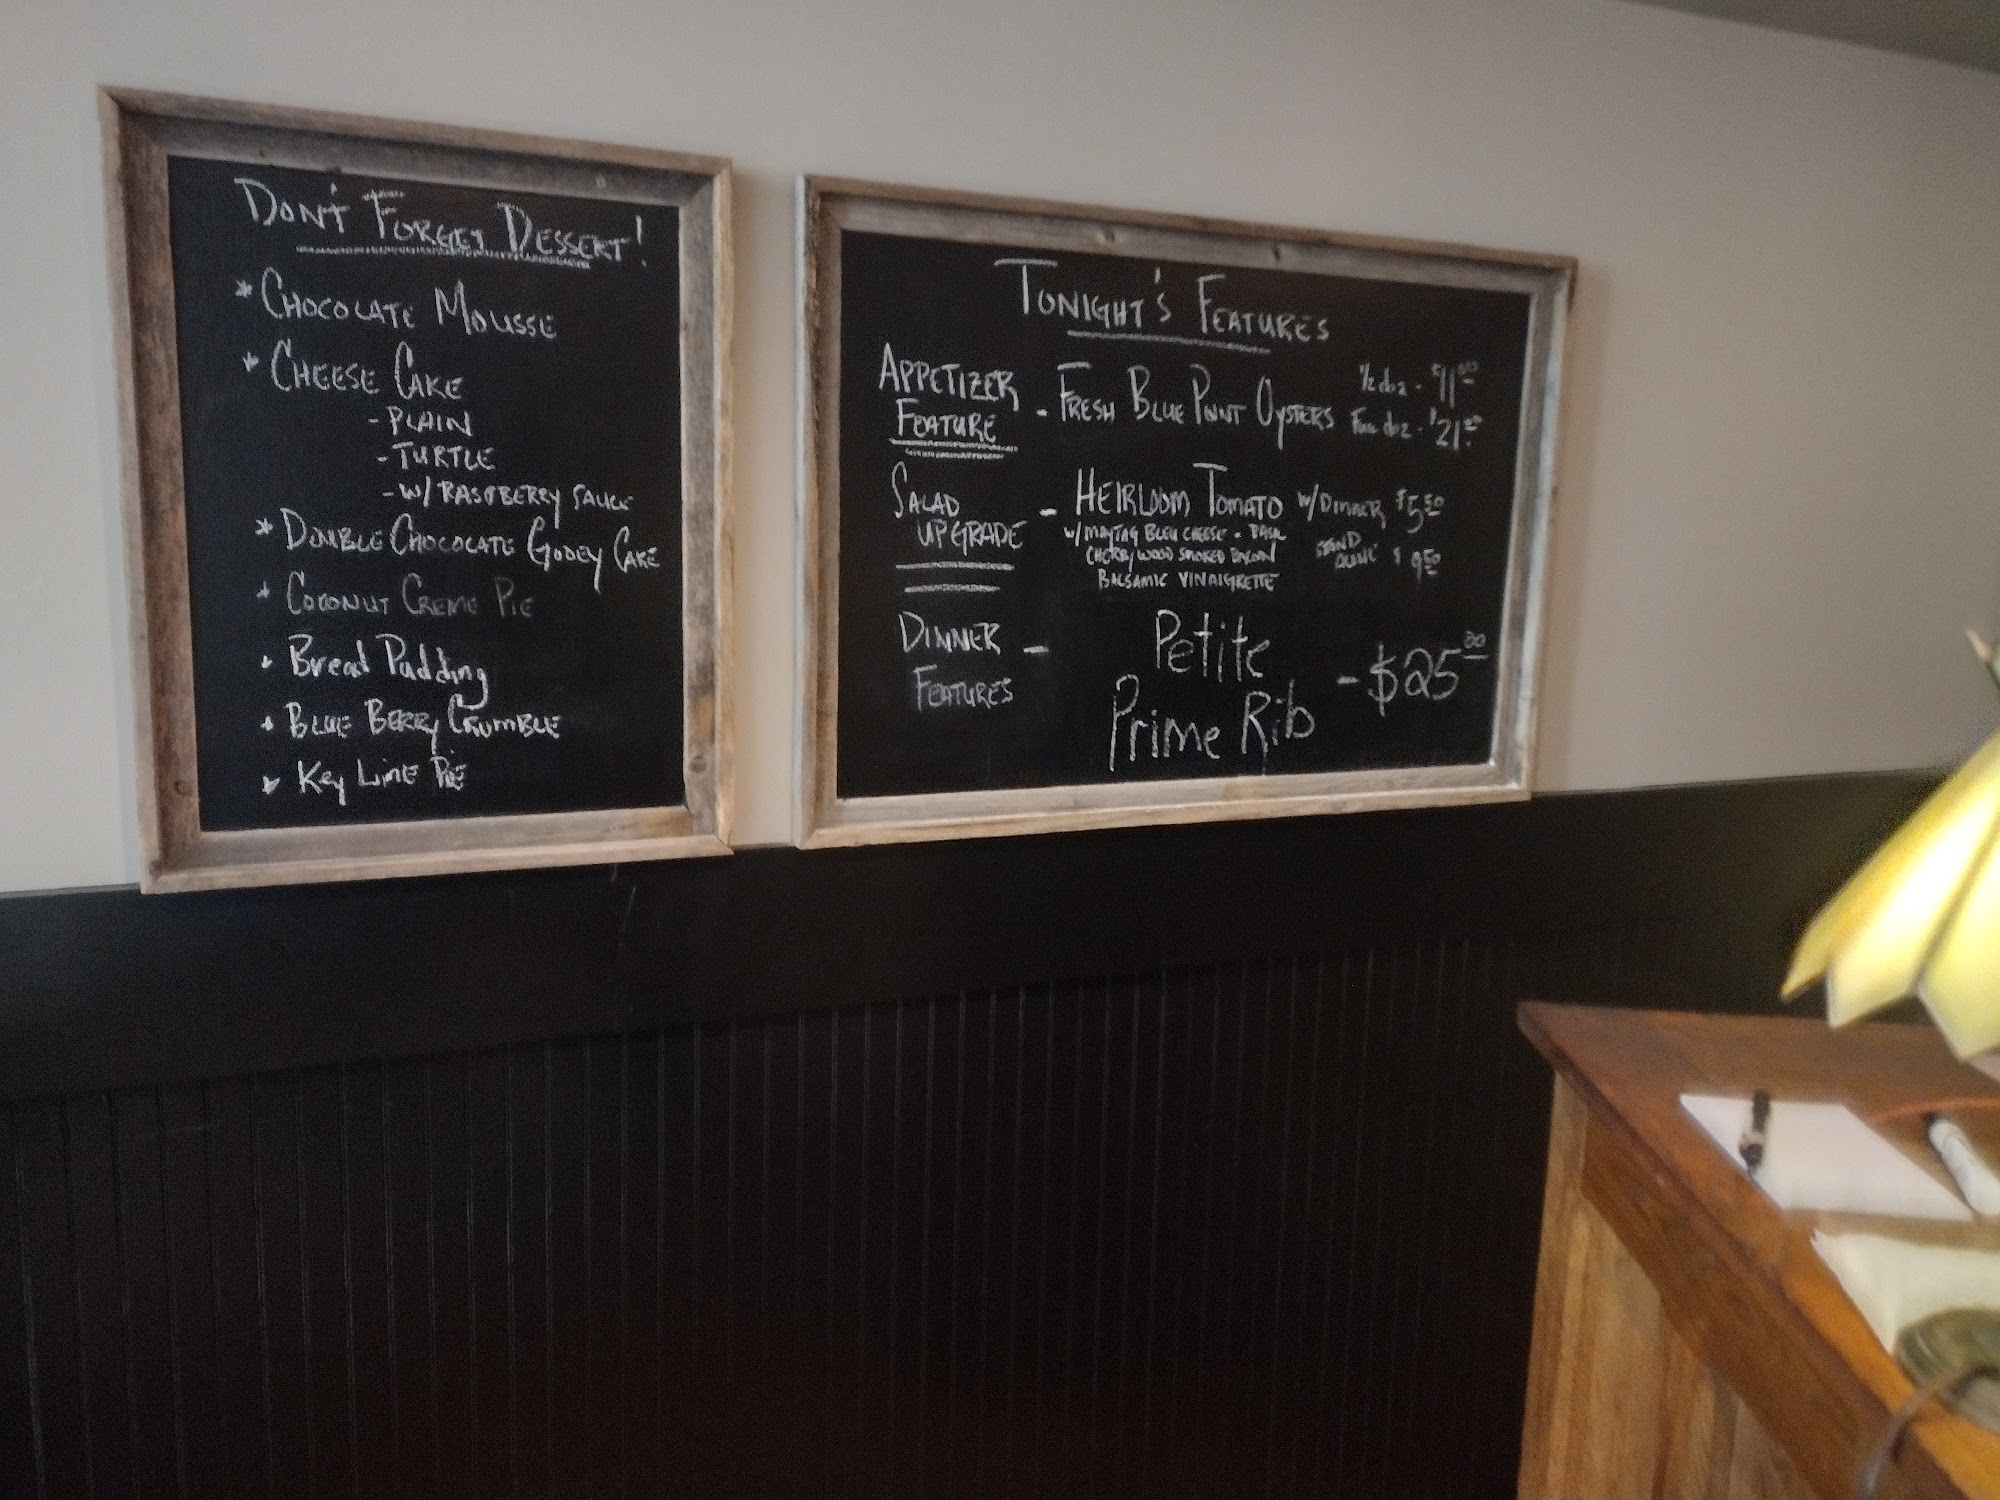 DON'T FORGET DESSERT!
* CHOCOLATE MOUSSE
* CHEESE CAKE
- PLAIN
- TURTLE
- W/ RASPBERRY SAUCE
* DOUBLE CHOCOLATE GOOEY CAKE
* COCONUT CREME PIE
* Bread Pudding
* BLUE BERRY CRUMBLE
* Key Lime Pie
TONIGHT'S FEATURES
APPETIZER FEATURE - FRESH BLUE POINT OYSTERS 1/2 doz - $11.00
doz - $21.00
SALAD UPGRADE - HEIRLOOM TOMATO W/ DINNER $5.50
W/ MAYTAG BLEU CHEESE - BASIL
CHERRY WOOD SMOKED BACON STAND ALONE $9.50
BALSAMIC VINAIGRETTE
DINNER FEATURES - Petite
Prime Rib - $25.00